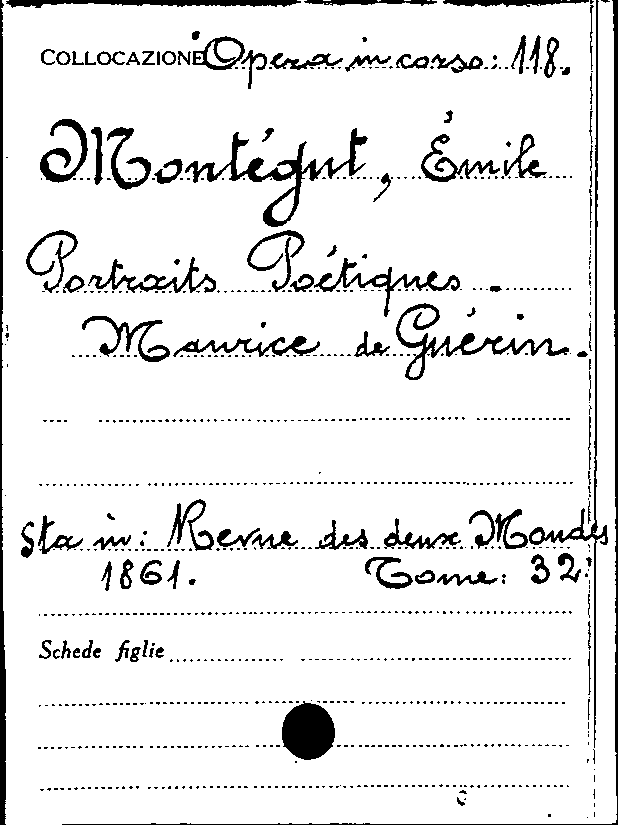 COLLOCAZIONE Opera in corso: 118.
Montégut, Émile
Portraits Poétiques.
Maurice de Guérin.
Sta in: Revue des deux Mondes
1861. Tome: 32.
Schede figlie